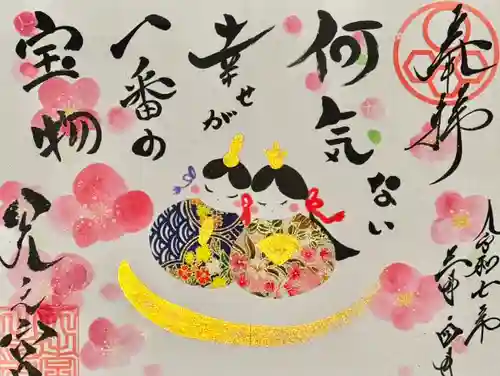 奉拝
何気ない
幸せが
一番の
宝物
令和七年